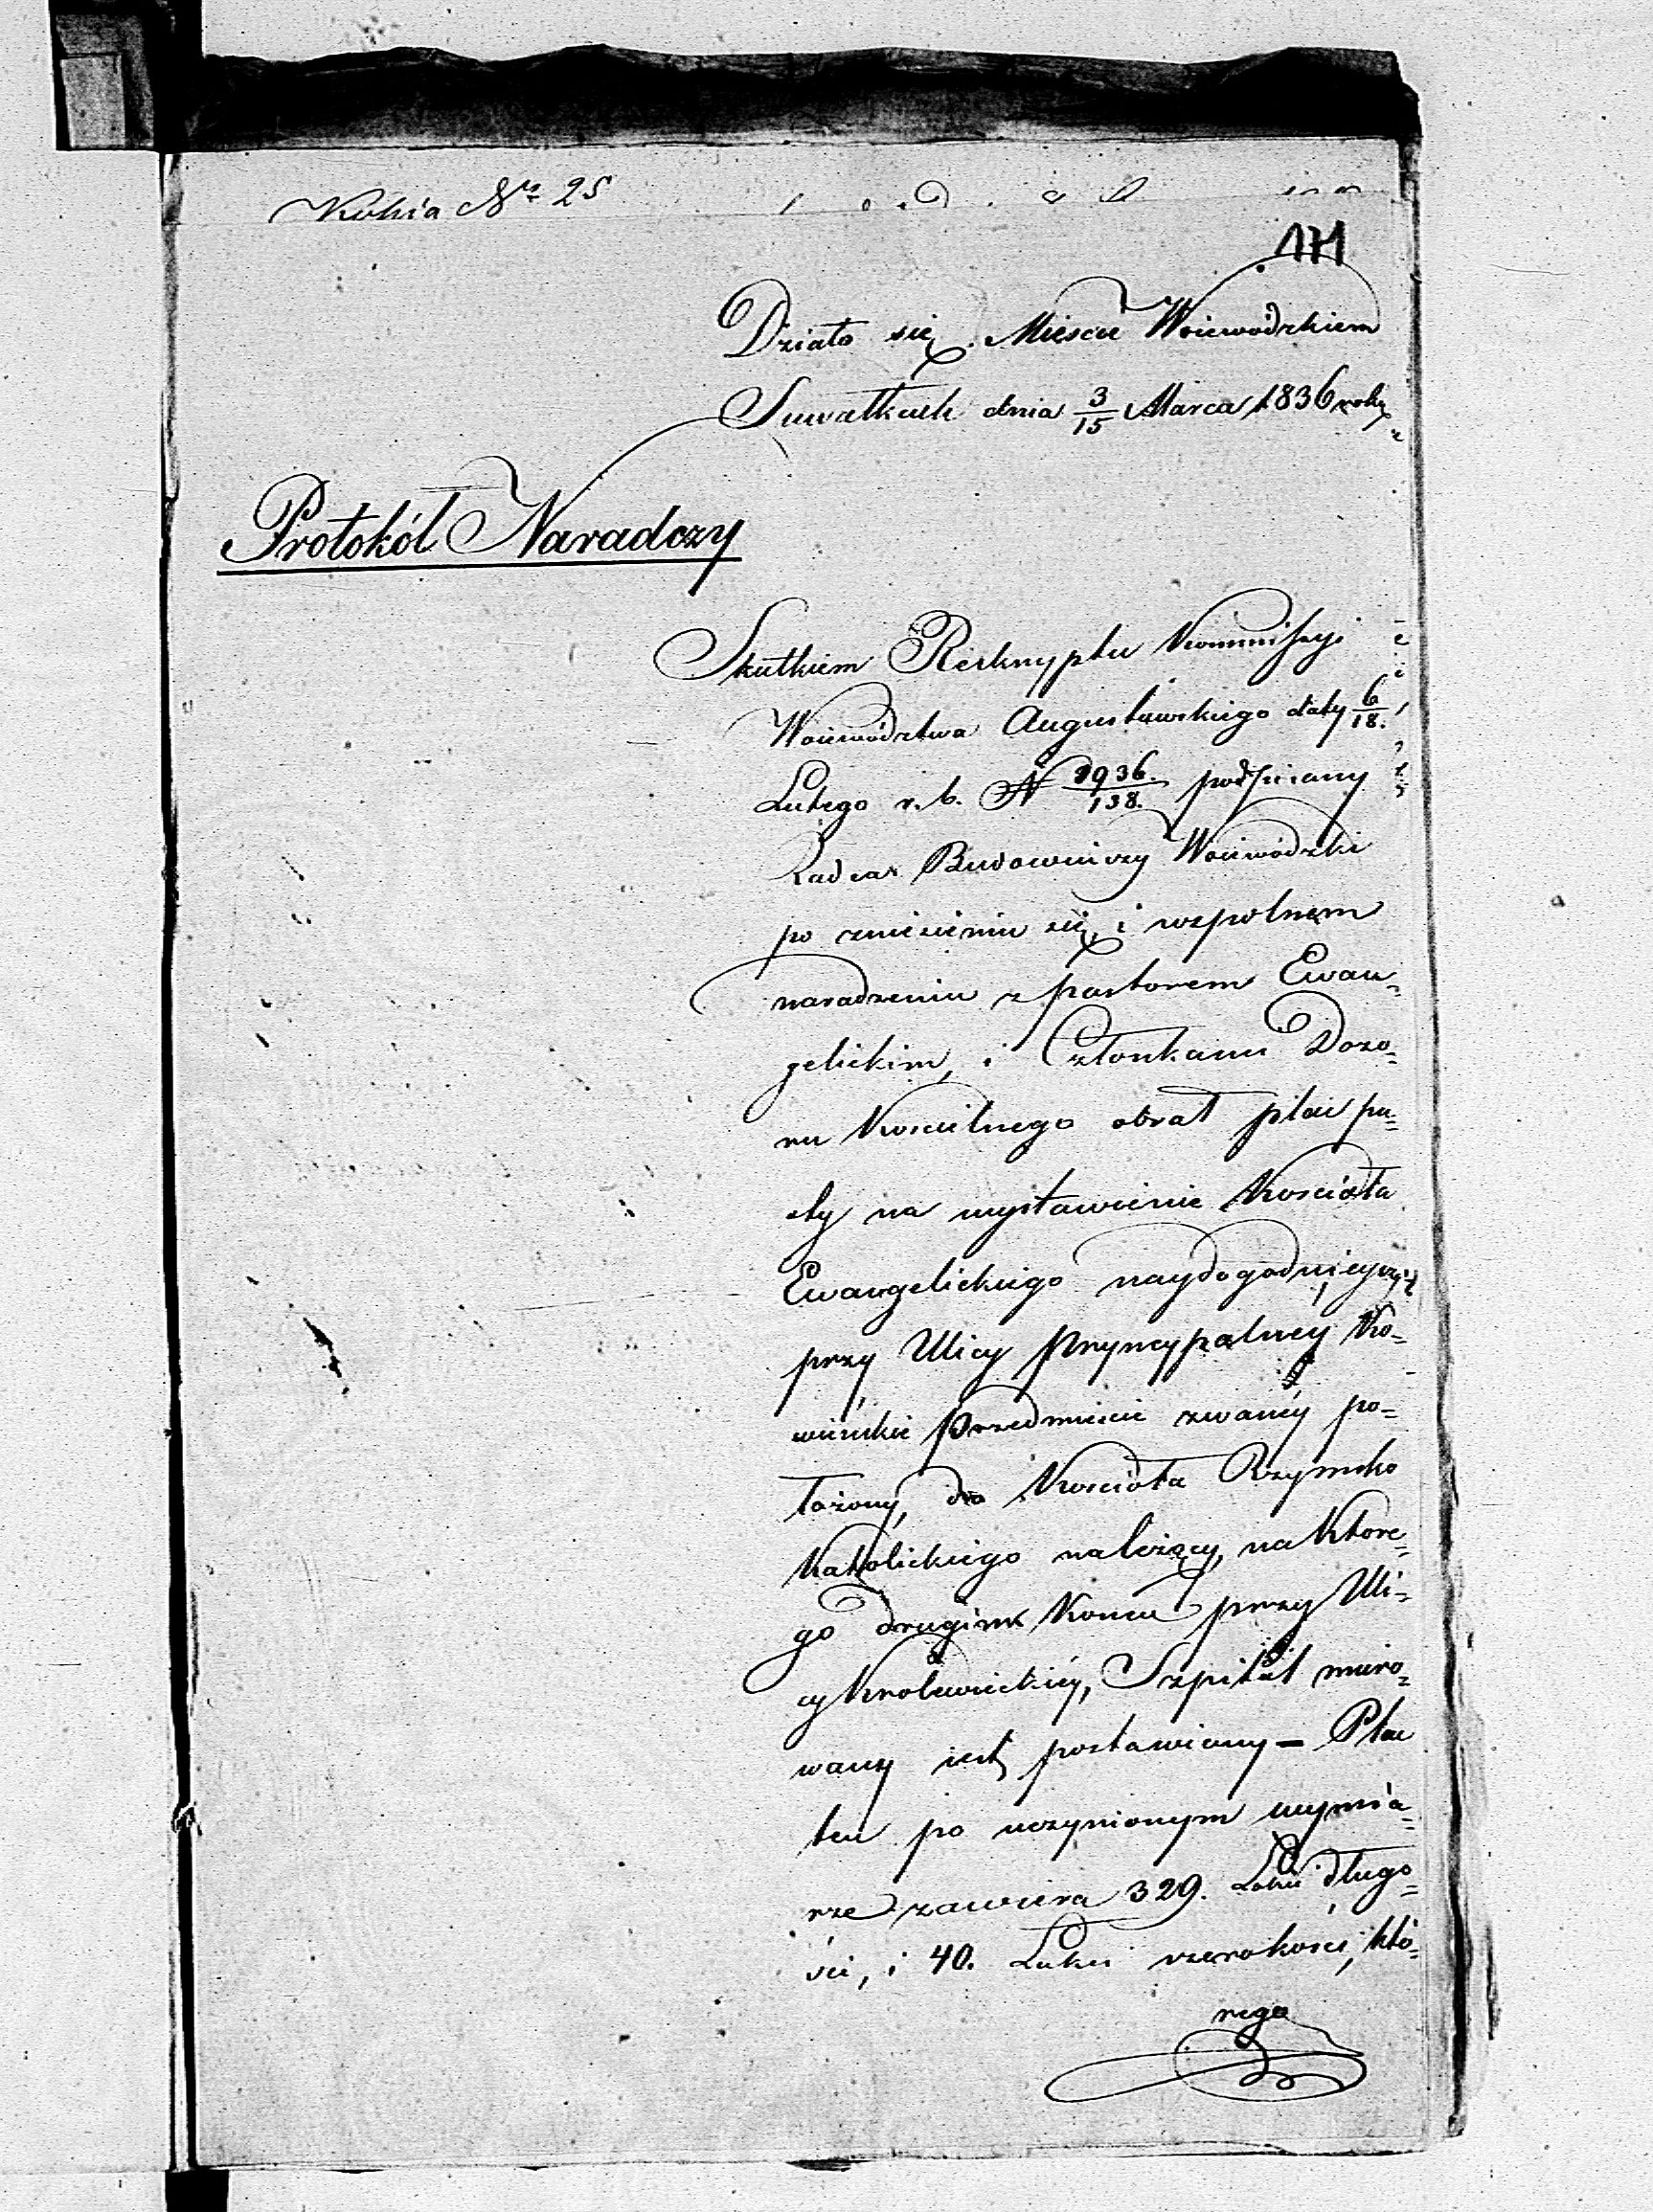 Kopia Nro 25
171
Działo się Mieście Woiewódzkiem
Suwałkach dnia 3/15 Marca 1836 roku
Protokół Naradczy
Skutkiem Reskryptu Kommissyi
Woiewództwa Augustowskiego daty 6/18.
Lutego r. b. N 9936./138. podpisany
Radca Budowniczy Woiewódzki
po zniesieniu się, i wspolnem
naradzeniu z pastorem Ewan=
gelickim, i Członkami Dozo=
ru Koscielnego obrał plac pu=
sty na wystawienie Kościoła
Ewangelickiego naydogodnieyszy
przy Ulicy Pryncypalney Ko=
wieńskie przedmieście zwaney po=
łożony, do Kościoła Rzymsko
Katolickiego należący, na które=
go drugim Koncu przy Uli=
cy Krolewieckiéy, Szpitál muro=
wany iest postawiony – Plac
ten po uczynionym wymia=
rze zawiera 329. Łokci długo=
ści, i 40. Łokci szerokości, któ=
rego